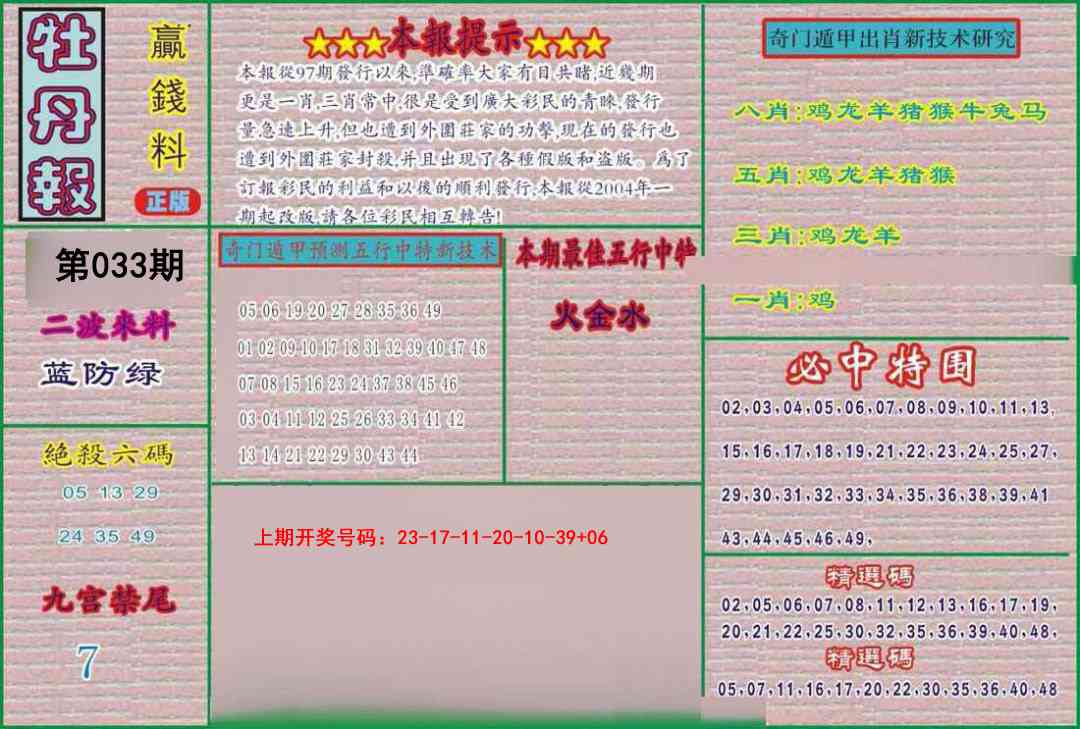 牡丹報
贏錢料
正版
★★★本報提示★★★
本報從97期發行以來,準確率大家有目共睹,近幾期
更是一肖,三肖常中,很是受到廣大彩民的青睞,發行
量急速上升,但也遭到外圍莊家的功擊,現在的發行也
遭到外圍莊家封殺,并且出現了各種假版和盗版。爲了
訂報彩民的利益和以後的順利發行,本報從2004年一
期起改版,請各位彩民相互轉告!
奇门遁甲出肖新技术研究
八肖:鸡龙羊猪猴牛兔马
五肖:鸡龙羊猪猴
三肖:鸡龙羊
一肖:鸡
第033期
二波來料
蓝防绿
奇门遁甲预测五行中特新技术
05 06 19 20 27 28 35 36 49
01 02 09 10 17 18 31 32 39 40 47 48
07 08 15 16 23 24 37 38 45 46
03 04 11 12 25 26 33 34 41 42
13 14 21 22 29 30 43 44
本期最佳五行中特
火金水
必中特围
02,03,04,05,06,07,08,09,10,11,13,
15,16,17,18,19,21,22,23,24,25,27,
29,30,31,32,33,34,35,36,38,39,41
43,44,45,46,49,
絕殺六碼
05 13 29
24 35 49
九宫禁尾
7
上期开奖号码：23-17-11-20-10-39+06
精選碼
02,05,06,07,08,11,12,13,16,17,19,
20,21,22,25,30,32,35,36,39,40,48,
精選碼
05,07,11,16,17,20,22,30,35,36,40,48